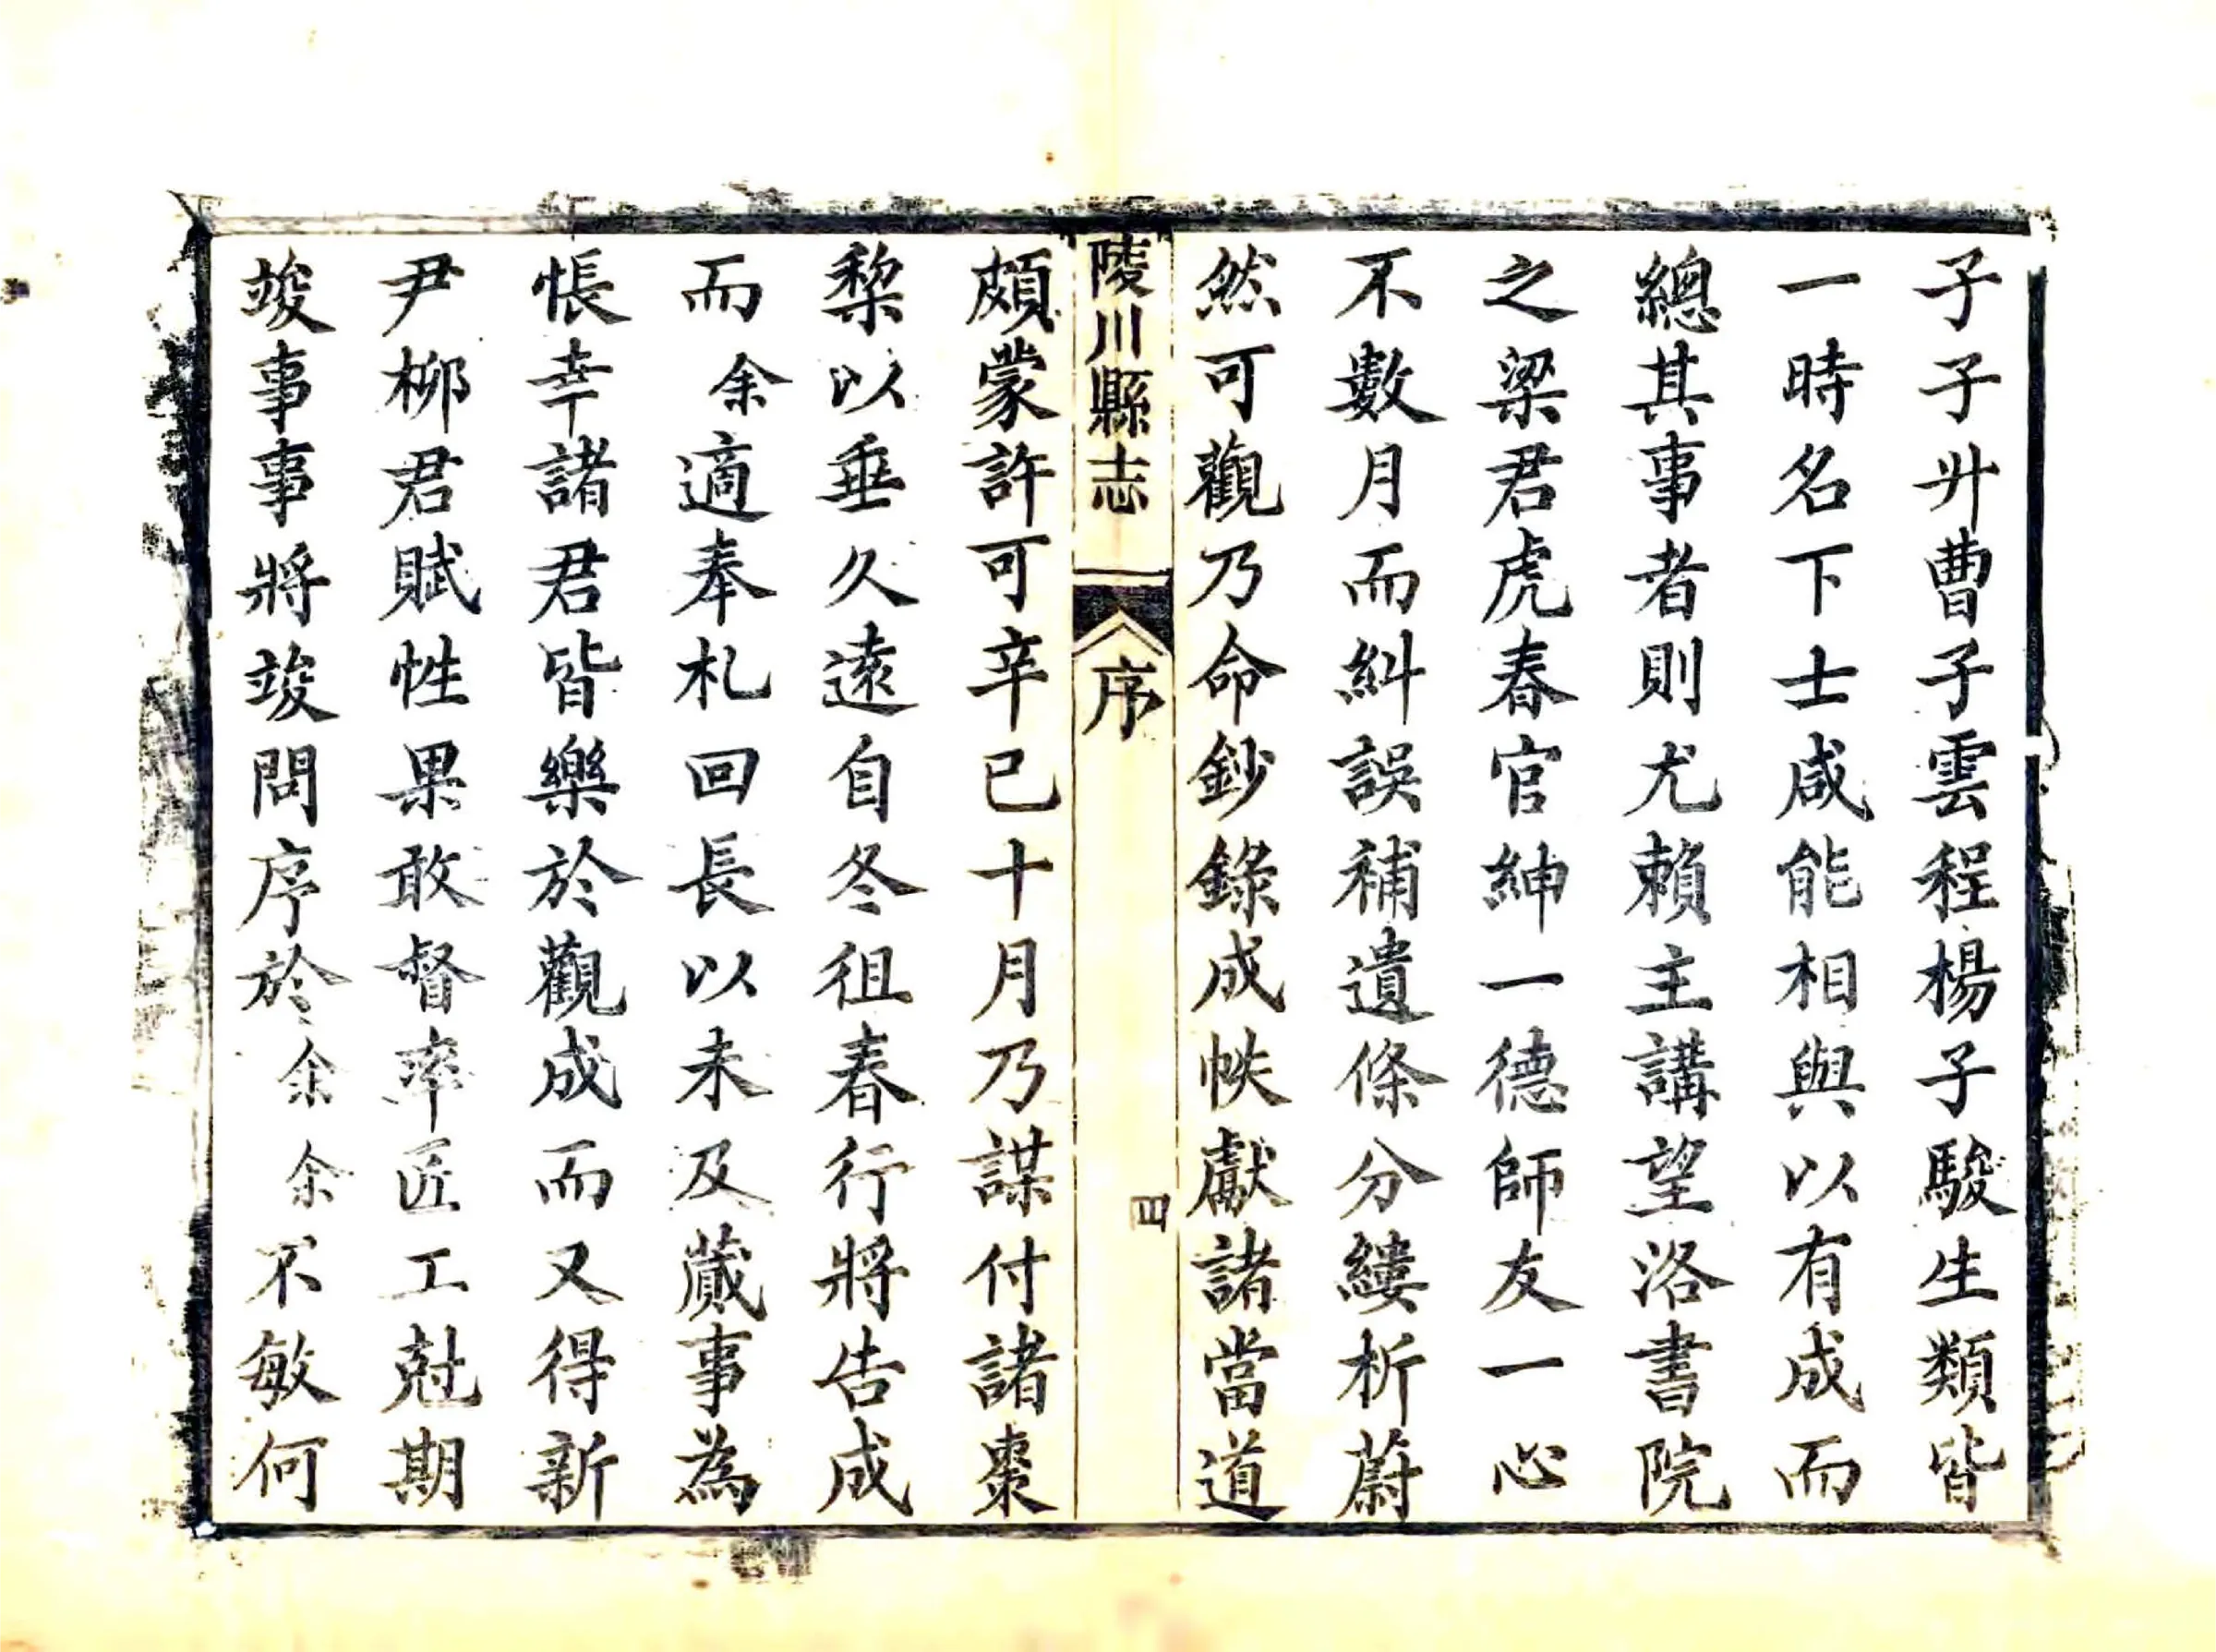 子子廾曹子雲程楊子駿生類皆
一時名下士咸能相與以有成而
總其事者則尤賴主講望洛書院
之梁君虎春官紳一德師友一心
不數月而糾誤補遺條分縷析蔚
然可觀乃命鈔錄成帙獻諸當道
陵川縣志
序
四
頗蒙許可辛巳十月乃謀付諸棗
棃以垂久遠自冬徂春行將告成
而余適奉札回長以未及蕆事為
悵幸諸君皆樂於觀成而又得新
尹栁君賦性果敢督率匠工尅期
竣事事將竣問序於余余不敏何